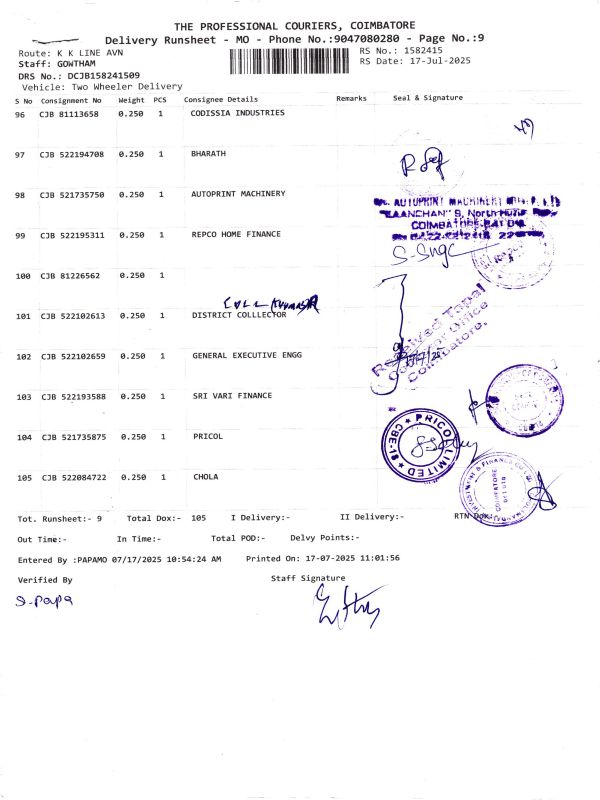 THE PROFESSIONAL COURIERS, COIMBATORE
Delivery Runsheet - MO - Phone No.:9047080280 - Page No.:9
Route: K K LINE AVN
RS No.: 1582415
Staff: GOWTHAM
RS Date: 17-Jul-2025
DRS No.: DCJB158241509
Vehicle: Two Wheeler Delivery
S No Consignment No Weight PCS Consignee Details Remarks Seal & Signature
96 CJB 81113658 0.250 1 CODISSIA INDUSTRIES
97 CJB 522194708 0.250 1 BHARATH
98 CJB 521735750 0.250 1 AUTOPRINT MACHINERY
AUTOPRINT MACHINERY
"KAANCHAN" 9, North Huzur
COIMBATORE
99 CJB 522195311 0.250 1 REPCO HOME FINANCE
100 CJB 81226562 0.250 1
101 CJB 522102613 0.250 1 DISTRICT COLLLECTOR
Received Tapal
Collector Office
Coimbatore.
17/7/25
102 CJB 522102659 0.250 1 GENERAL EXECUTIVE ENGG
103 CJB 522193588 0.250 1 SRI VARI FINANCE
104 CJB 521735875 0.250 1 PRICOL
PRICOL LIMITED
CBE-18
105 CJB 522084722 0.250 1 CHOLA
COIMBATORE
Tot. Runsheet:- 9 Total Dox:- 105 I Delivery:- II Delivery:- RTN Dox:-
Out Time:- In Time:- Total POD:- Delvy Points:-
Entered By :PAPAMO 07/17/2025 10:54:24 AM Printed On: 17-07-2025 11:01:56
Verified By Staff Signature
S. Papa